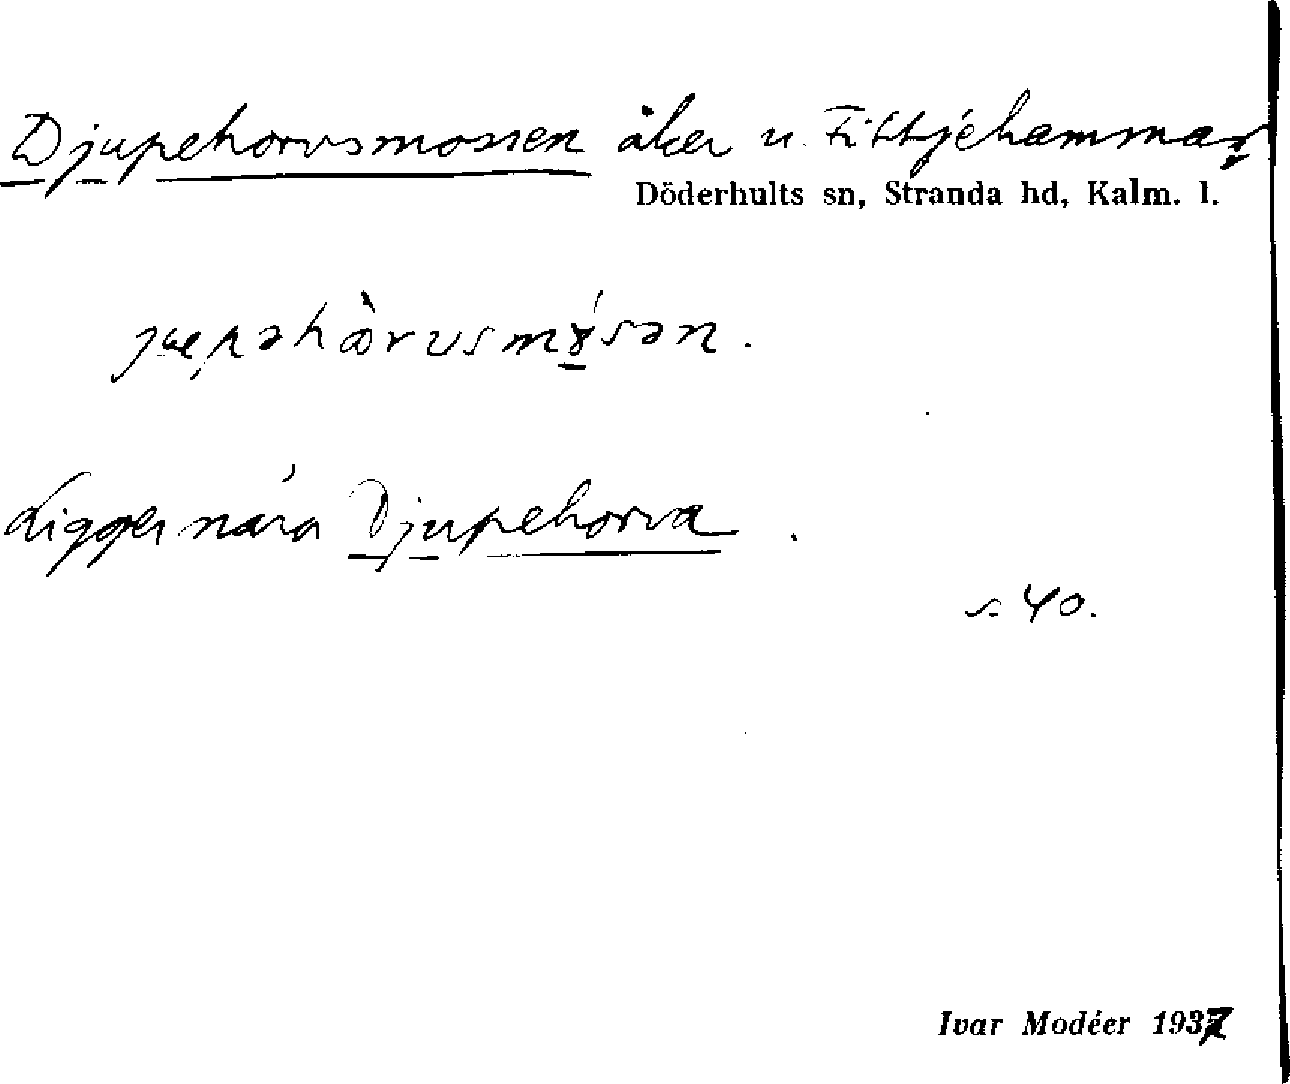 Djupehorvsmossen åker u. Fittjehammar
Döderhults sn, Stranda hd, Kalm. l.
Ligger nära Djupehorva.
s. 40.
Ivar Modéer 1937